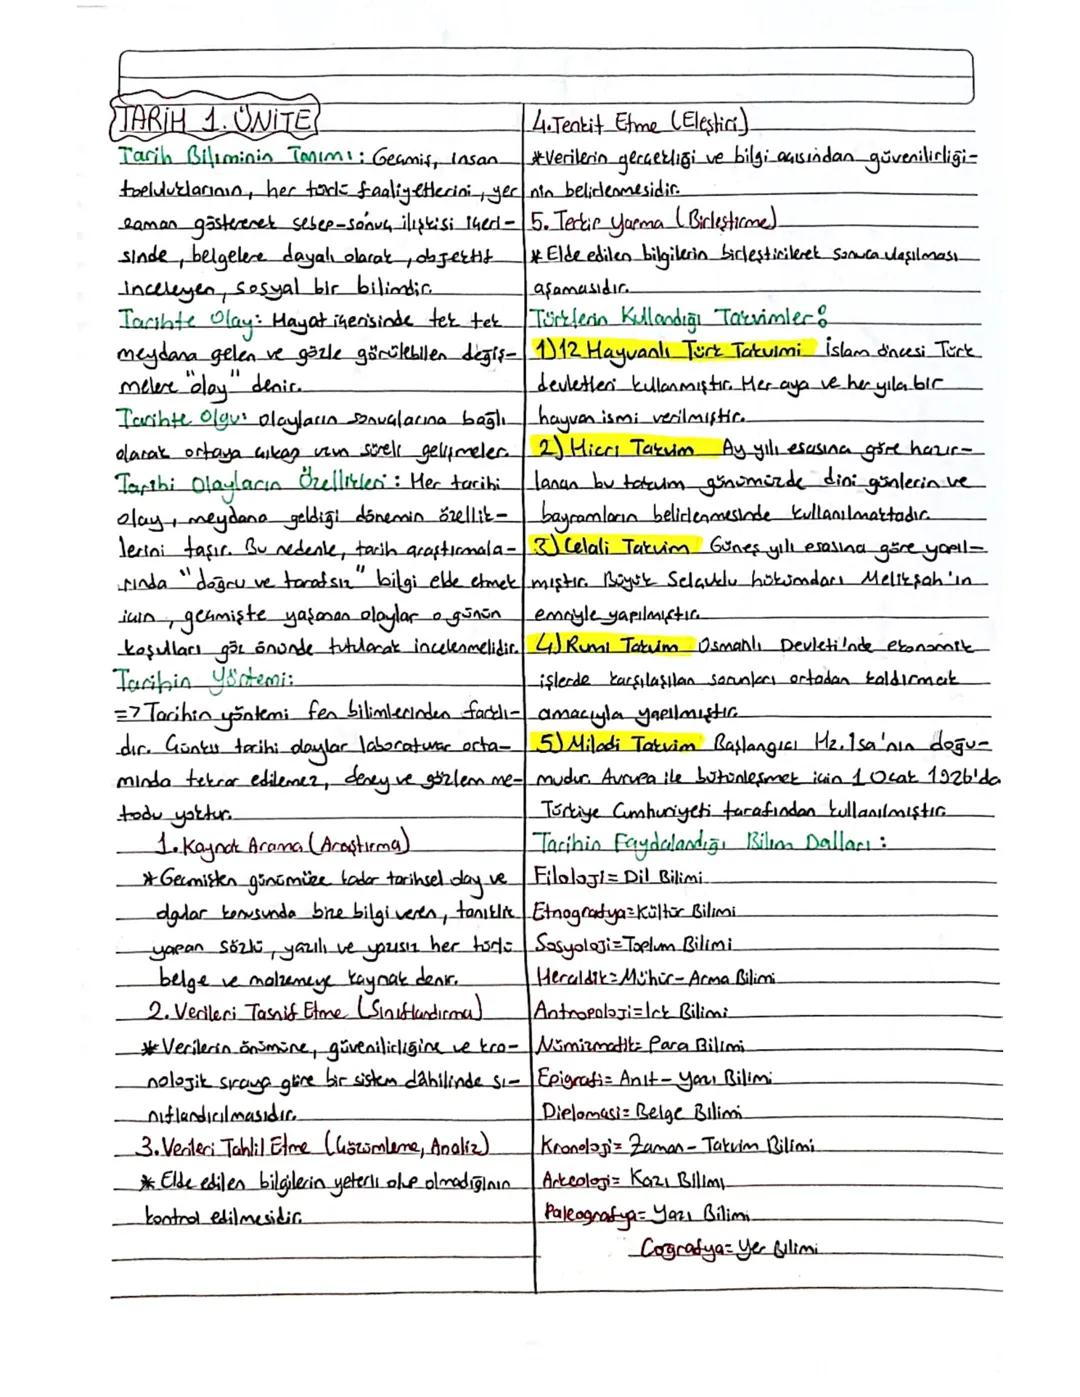 TARİH 1. ÜNİTE
Tarih Biliminin Tanımı: Geçmiş, insan
topluluklarının, her türlü faaliyetlerini, yer
zaman göstererek sebep-sonuç ilişkisi içeri-
sinde, belgelere dayalı olarak, objektif
inceleyen, sosyal bir bilimdir.
Tarihte Olay: Hayat içerisinde tek tek
meydana gelen ve gözle görülebilen değiş-
melere "olay" denir.
Tarihte Olgu: Olayların sonuçlarına bağlı
olarak ortaya çıkan uzun süreli gelişmeler.
Tarihi Olayların Özellikleri: Her tarihi
olay, meydana geldiği dönemin özellik-
lerini taşır. Bu nedenle, tarih araştırmala-
rında "doğru ve tarafsız" bilgi elde etmek
için, geçmişte yaşanan olaylar o günün
koşulları göz önünde tutularak incelenmelidir.
Tarihin Yöntemi:
=> Tarihin yöntemi fen bilimlerinden farklı-
dır. Çünkü tarihi olaylar laboratuvar orta-
mında tekrar edilemez, deney ve gözlem me-
todu yoktur.
1. Kaynak Arama (Araştırma)
* Geçmişten günümüze kadar tarihsel olay ve
olgular konusunda bize bilgi veren, tanıklık
yapan sözlü, yazılı ve yazısız her türlü
belge ve malzemeye kaynak denir.
2. Verileri Tasnif Etme (Sınıflandırma)
* Verilerin önümüne, güvenilirliğine ve kro-
nolojik sıraya göre bir sistem dâhilinde sı-
nıflandırılmasıdır.
3. Verileri Tahlil Etme (Çözümleme, Analiz)
* Elde edilen bilgilerin yeterli olup olmadığının
kontrol edilmesidir.
4. Tenkit Etme (Eleştiri)
* Verilerin gerçekliği ve bilgi açısından güvenilirliği-
nin belirlenmesidir.
5. Terkip Yapma (Birleştirme)
* Elde edilen bilgilerin birleştirilerek sonuca ulaşılması
aşamasıdır.
Türklerin Kullandığı Takvimler:
1) 12 Hayvanlı Türk Takvimi İslam öncesi Türk
devletleri kullanmıştır. Her aya ve her yıla bir
hayvan ismi verilmiştir.
2) Hicri Takvim Ay yılı esasına göre hazır-
lanan bu takvim günümüzde dini günlerin ve
bayramların belirlenmesinde kullanılmaktadır.
3) Celali Takvim Güneş yılı esasına göre yapıl-
mıştır. Büyük Selçuklu hükümdarı Melikşah'ın
emriyle yapılmıştır.
4) Rumi Takvim Osmanlı Devleti'nde ekonomik
işlerde karşılaşılan sorunları ortadan kaldırmak
amacıyla yapılmıştır.
5) Miladi Takvim Başlangıcı Hz. İsa'nın doğu-
mudur. Avrupa ile bütünleşmek için 1 Ocak 1926'da
Türkiye Cumhuriyeti tarafından kullanılmıştır.
Tarihin Faydalandığı Bilim Dalları:
Filoloji = Dil Bilimi
Etnografya = Kültür Bilimi
Sosyoloji = Toplum Bilimi
Heraldik = Mühür - Arma Bilimi
Antropoloji = Irk Bilimi
Nümizmatik = Para Bilimi
Epigrafi = Anıt - Yazı Bilimi
Diplomasi = Belge Bilimi
Kronoloji = Zaman - Takvim Bilimi
Arkeoloji = Kazı Bilimi
Paleografya = Yazı Bilimi
Coğrafya = Yer Bilimi